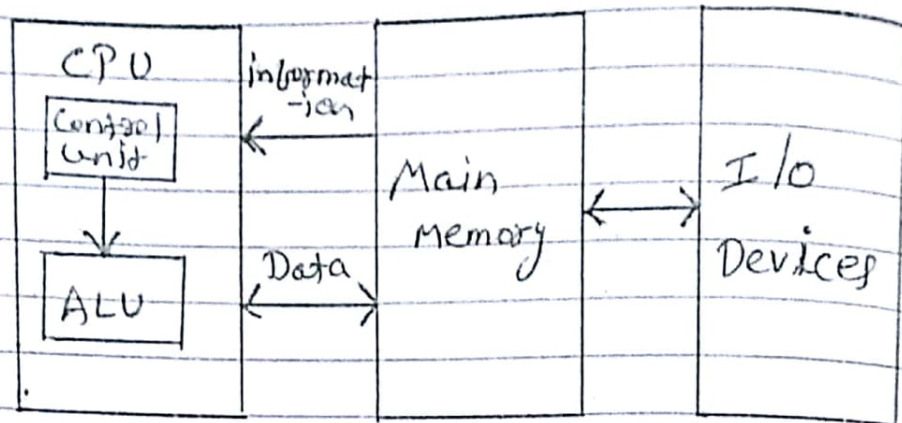 CPU
Control
unit
ALU
informat
-ion
Data
Main
memory
I/O
Devices